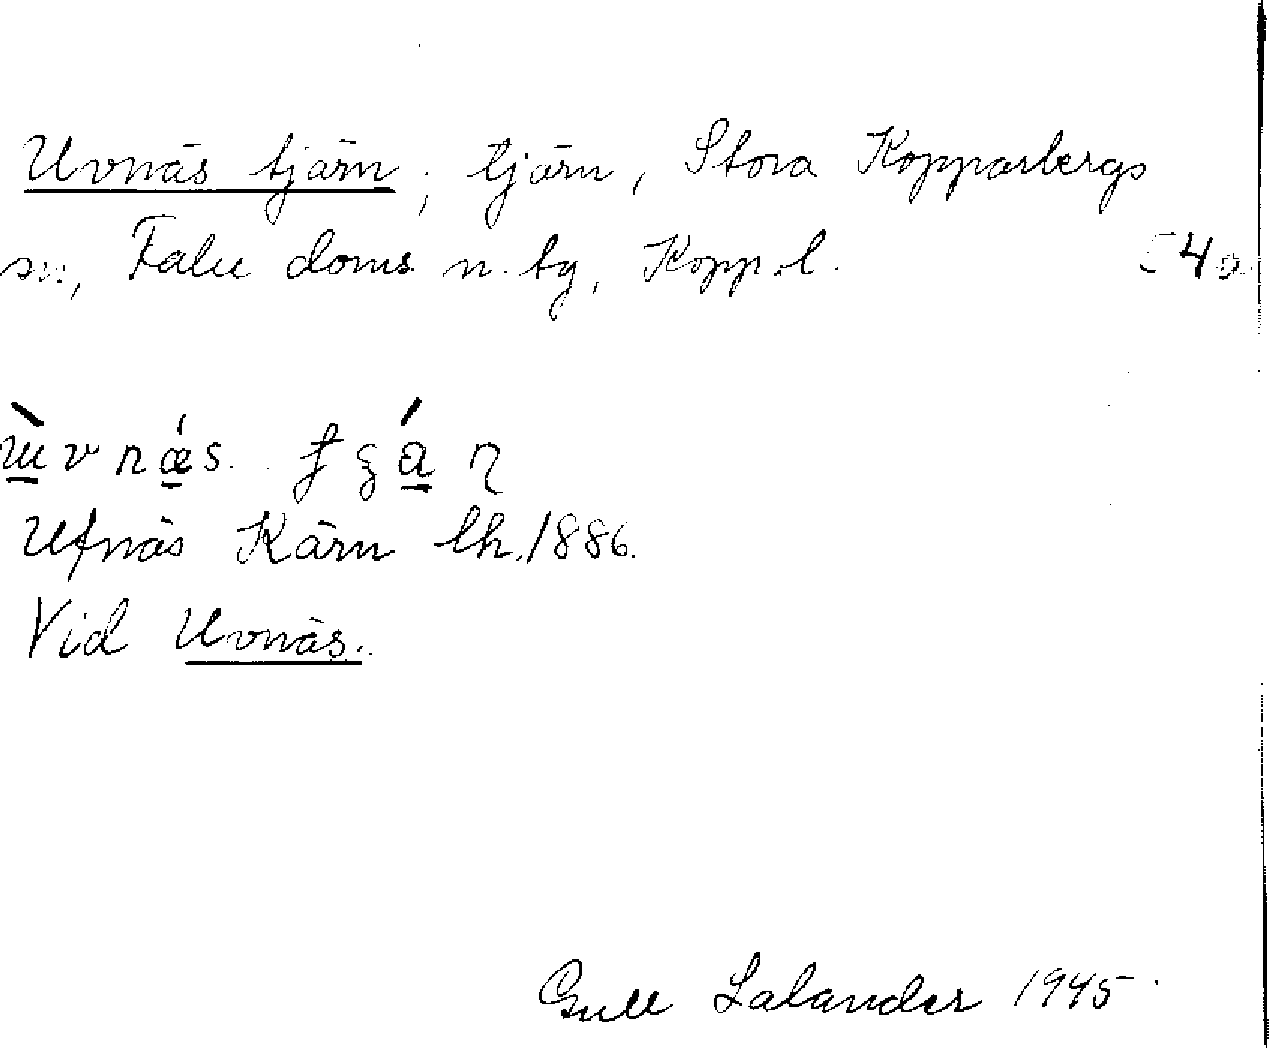 Uvnäs tjärn; tjärn, Stora Kopparbergs
sn, Falu doms. n. tg, Kopp. l. 54a
Ufnäs Kärn lk. 1886.
Vid Uvnäs.
Gull Lalander 1945